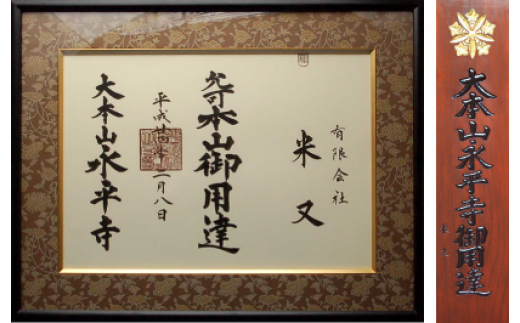 有限会社
米又
本山御用達
平成 月八日
大本山永平寺
大本山永平寺御用達